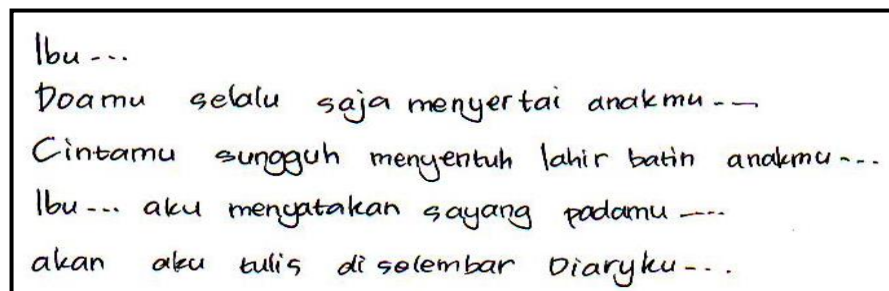 Ibu ...
Doamu selalu saja menyertai anakmu ...
Cintamu sungguh menyentuh lahir batin anakmu ...
Ibu ... aku menyatakan sayang padamu ...
akan aku tulis di selembar Diaryku ...